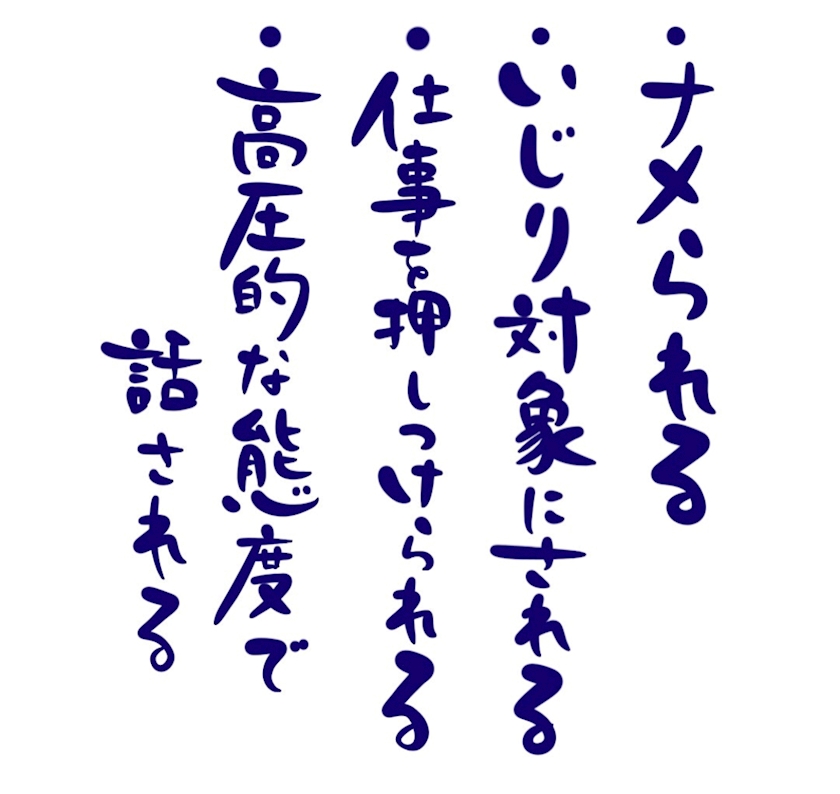 ・ナメられる
・いじり対象にされる
・仕事を押しつけられる
・高圧的な態度で
話される